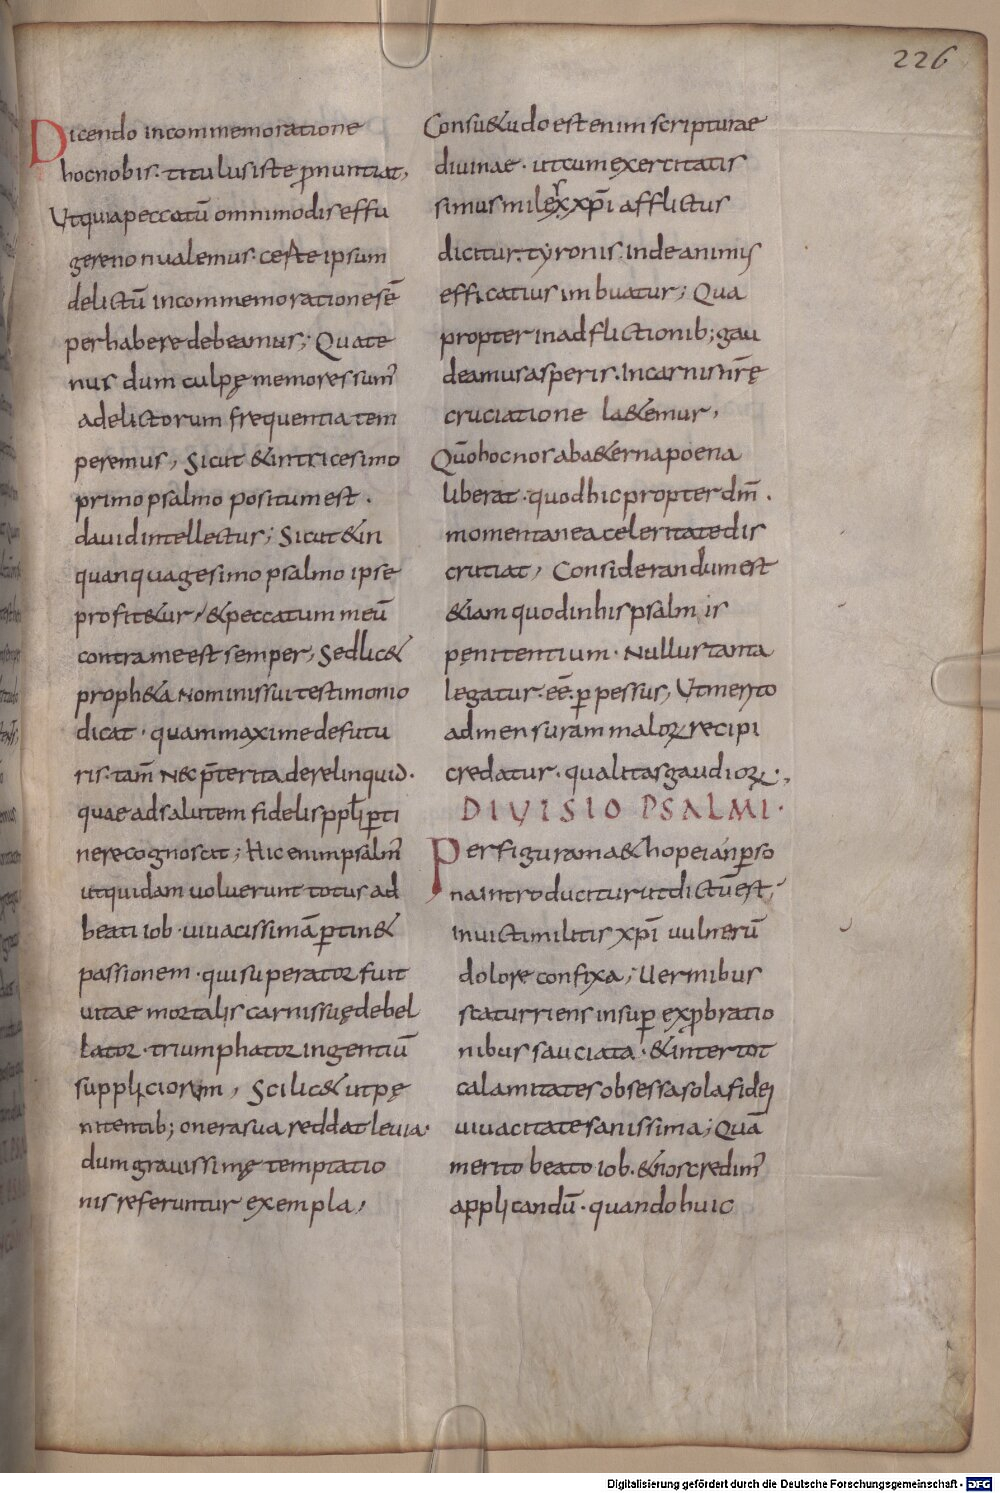 226
Dicendo incommemoratione
hocnobis· titulus iste p̄nuntiat,
Utquia peccatū omnimodis effu
gere non ualemus· certe ipsum
delictū incommemoratione sē
per habere debeamus; Quate
nus dum culpę memores sum᾽
adelictorum frequentia tem
peremus, Sicut & intricesimo
primo psalmo positum est ·
dauid intellectus; Sicut & in
quanquagesimo psalmo ipse
profit&ur, & peccatum meū
contra me est semper, Sed lic&
proph&a nominis sui testimonio
dicat · quam maxime de futu
ris· tam̄ nec p̄terita derelinquid·
quae ad salutem fidelis ppli p̱ti
nere cognoscat; Hic enim psalm᾽
ut quidam uoluerunt totus ad
beati iob · uiuacissimā p̱tin&
passionem · qui superator fuit
uitae mortalis carnis suę debel
lator · triumphator ingentiū
suppliciorum, Scilic& ut pę
nitentib; onera sua reddat leuia·
dum grauissimę temptatio
nis referuntur exempla,
Consu&udo est enim scripturae
diuinae · ut cum exercitatis
simus milex xp̄i afflictus
dicitur· tyronis inde animus
efficatius imbuatur; Qua
propter in adflictionib; gau
deamus asperis· In carnis nr̄ę
cruciatione la&emur,
Qūo hoc nos ab a&erna poena
liberat · quod hic propter dn̄m ·
momentanea celeritate dis
cruciat, Considerandum est
&iam quod in his psalmis
pęnitentium · Nullus tanta
legatur· eē p̱pessus, Ut merito
ad mensuram maloꝝ recipi
credatur · qualitas gaudioꝝ·,
DIUISIO PSALMI·
Per figuram a&hopeian p̱so
na introducitur ut dictū est,
inuicti militis xp̄i uulnerū
dolore confixa; Uermibus
scaturriens insup̱ exprobratio
nibus sauciata · & inter tot
calamitates obsessa sola fidei
uiuacitate sanissima; Quā
merito beato iob · & nos credim᾽
applicandū · quando huic
Digitalisierung gefördert durch die Deutsche Forschungsgemeinschaft - DFG